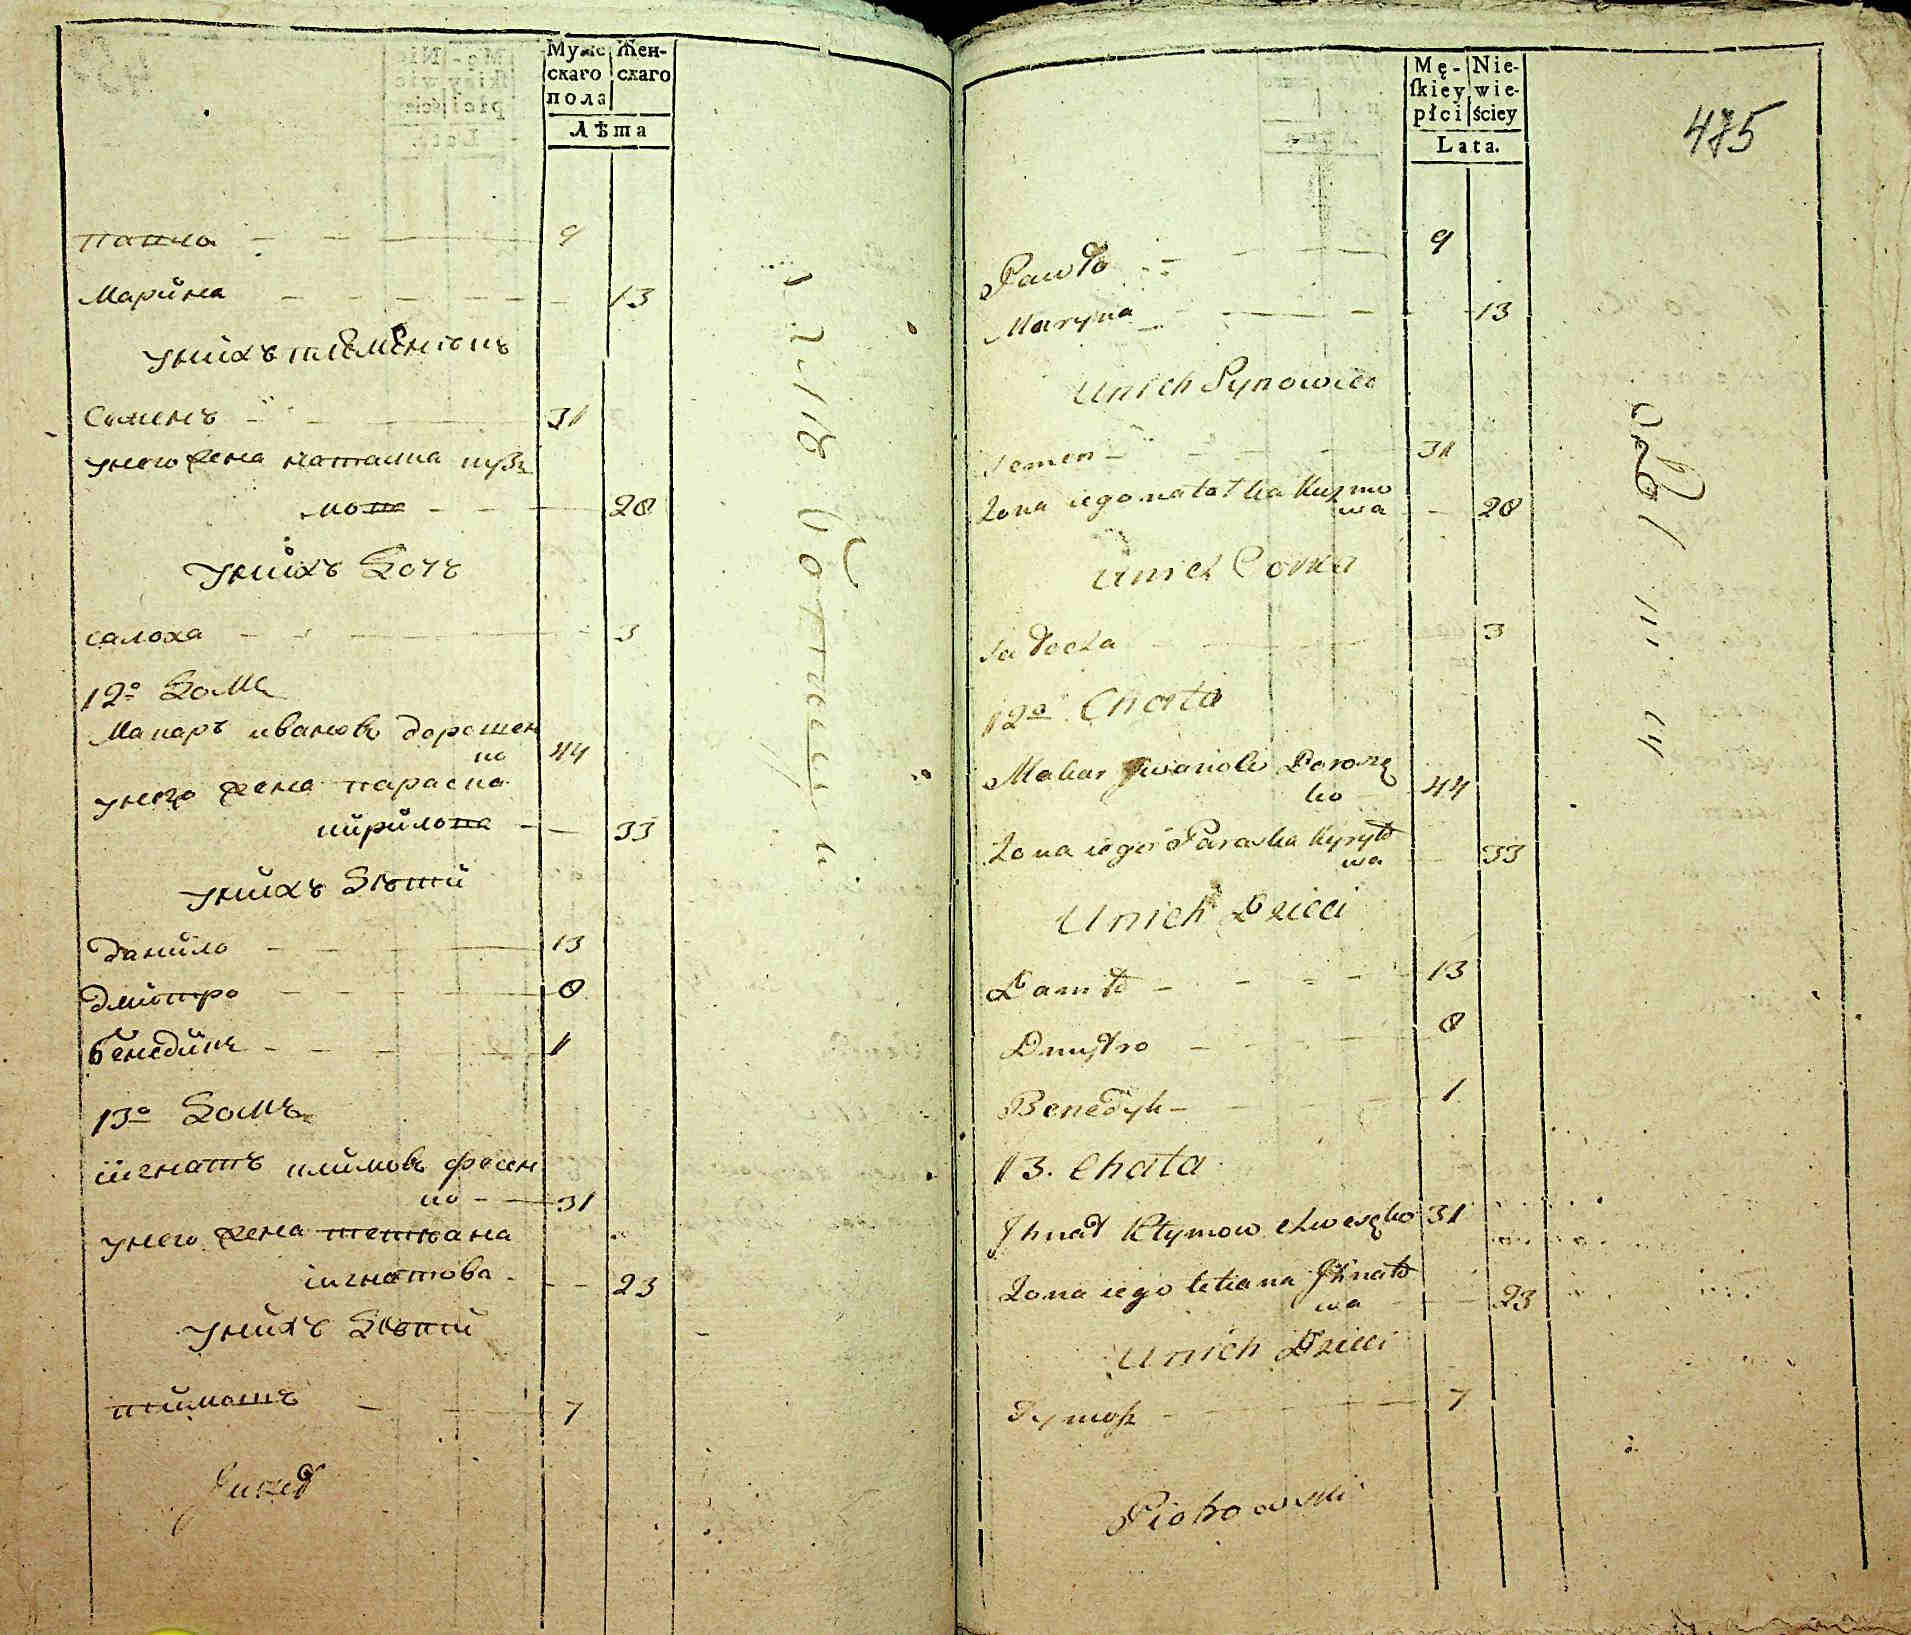 Муже Жен-
скаго скаго
пола
Лѣта
павла 9
Марина 13
унихъ племеникъ
Семенъ 31
унего жена наталиа кузм
мова 28
унихъ дочь
салоха 3
12º домъ
Макаръ ивановъ дорошен
ко 44
унего жена параска
кирилова 33
унихъ дѣти
данило 13
дмитро 8
бенедикъ 1
13º домъ
игнатъ климовъ фесен
ко 31
унего жена тетиана
игнатова 23
унихъ дѣти
тимошъ 7
Juzef
Mę- Nie-
ſkiey wie-
płci ściey
Lata.
475
Pawło 9
Maryna 13
Unich Synowiec
Semen 31
Zona iego natałka Kuzmo
wa 28
Unich Corka
Sałocha 3
12º Chata
Makar Jwanow Doroszę
ko 44
Zona iego Paraska Kyryło
wa 33
Unich Dzieci
Daniło 13
Dmytro 8
Benedyk 1
13. Chata
Jhnat Kłymow chweszko 31
Zona iego tetiana Jhnato
wa 23
Unich Dzieci
Tymosz 7
Piotrowski